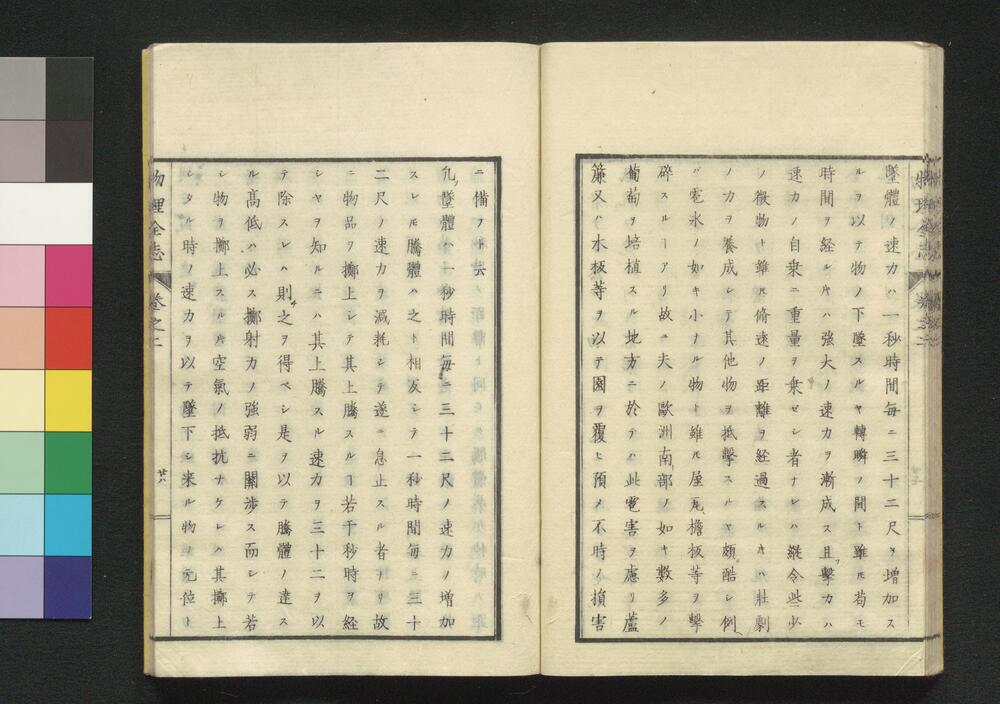 墜體ノ速力ハ一秒時間毎ニ三十二尺ヲ増加ス
ルヲ以テ物ノ下墜スルヤ轉瞬ノ間ト雖ル苟モ
時間ヲ経ル𬼀ハ強大ノ速力ヲ漸成ス且撃力ハ
速力ノ自乗ニ重量ヲ乗セシ者ナレハ縦令些少
ノ微物ト雖ル脩遠ノ距離ヲ経過スル𬼀ハ壯劇
ノ力ヲ養成シテ其他物ヲ抵撃スルヤ頗酷シ例
ハ雹氷ノ如キ小ナル物ト雖ル屋瓦檐板等ヲ撃
碎スルヿアリ故ニ夫ノ歐洲南部ノ如キ數多ノ
葡萄ヲ培植スル地方ニ於テハ此雹害ヲ慮リ蘆
簾又ハ水板等ヲ以テ園ヲ覆ヒ預メ不時ノ損害
物理全志 巻之二
ニ備フト云
凡墜體ハ一秒時間毎ニ三十二尺ノ速力ノ増加
スレ𪜈騰體ハ之ト相反シテ一秒時間毎ニ三十
二尺ノ速力ヲ減耗シテ遂ニ息止スル者ナリ故
ニ物品ヲ擲上シテ其上騰スルヿ若干秒時ヲ経
シヤヲ知ルニハ其上騰スル速力ヲ三十二ヲ以
テ除スレハ則之ヲ得ベシ是ヲ以テ騰體ノ達ス
ル髙低ハ必ス擲射力ノ強弱ニ關渉ス而シテ若
シ物ヲ擲上スル𬼀空氣ノ抵抗ナケレハ其擲上
シタル時ノ速力ヲ以テ墜下シ来ル物ノ元位ト
物理全志 巻之二 廿八